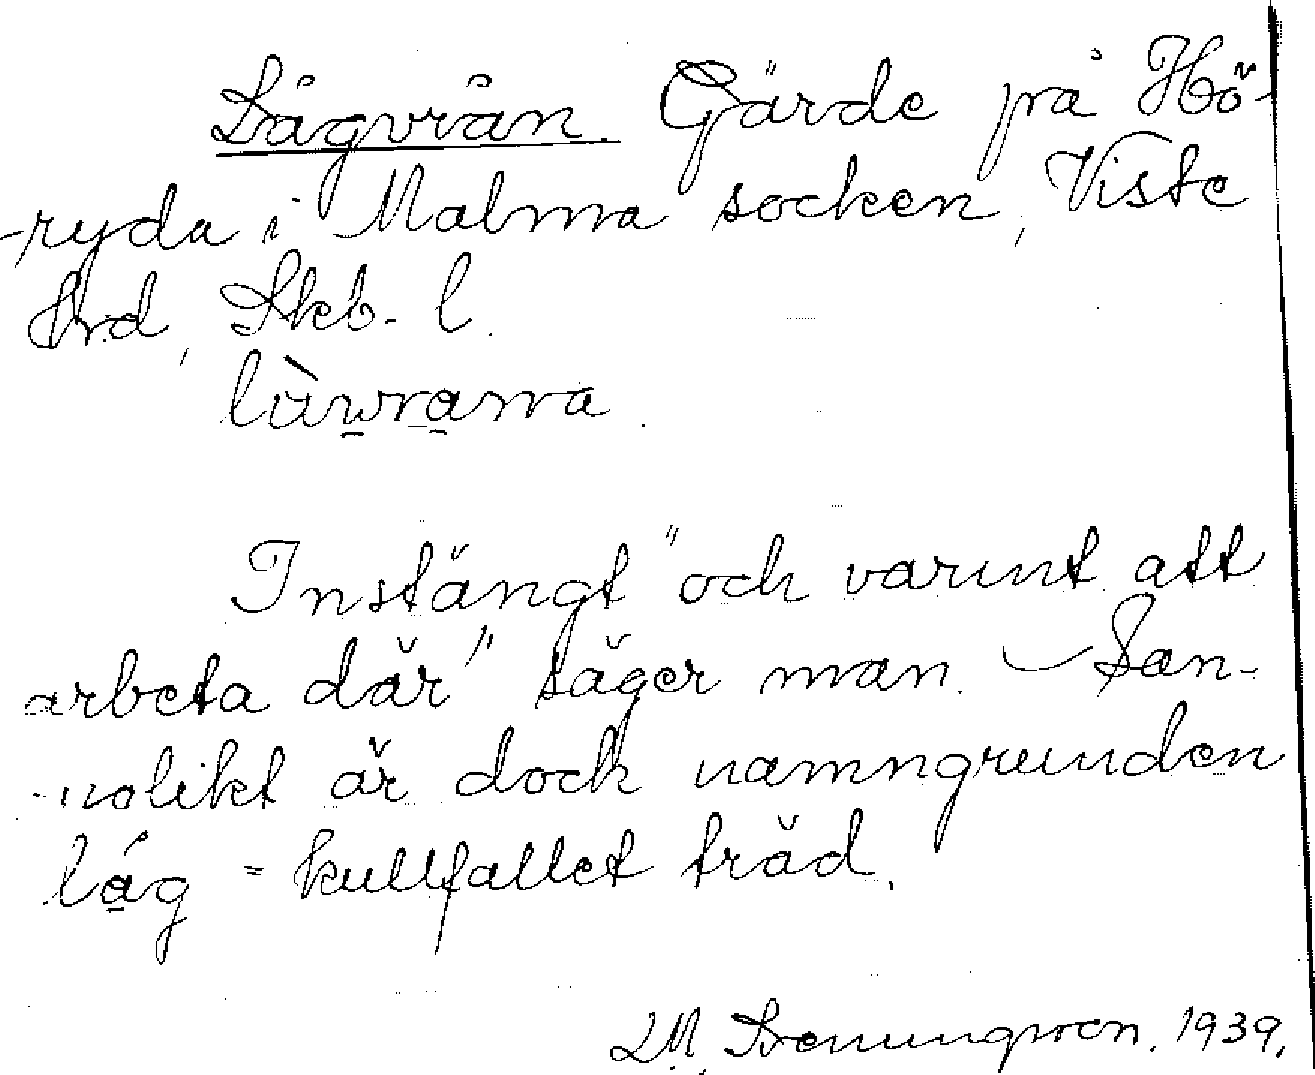 Lågvrån. Gärde på Hö-
-ryda i Malma socken, Viste
hrd, Skb. l.
Instängt "och varmt att
arbeta där" säger man. – San-
-nolikt är dock namngrunden
låg = kullfallet träd.
M. 1939.